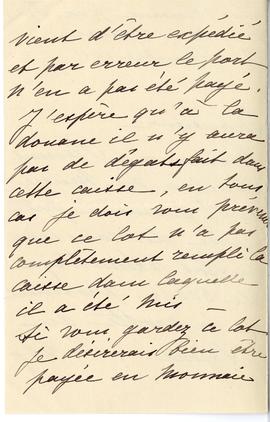 vient d'être expédié
et par erreur le port
n'en a pas été payé.
J'espère qu'à la
douane il n'y aura
pas de dégats fait dans
cette caisse, en tous
cas je dois vous prévenir
que ce lot n'a pas
complètement rempli la
caisse dans laquelle
il a été mis –
Si vous gardez ce lot
je désirerais bien être
payée en monnaie